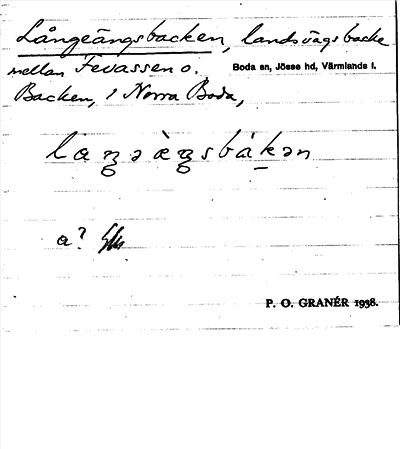 Långeängsbacken, landsvägsbacke
mellan Fevassen o.
Boda sn, Jösse hd, Värmlands l.
Backen, i Norra Boda,
laŋəàŋsbákən
a?
P. O. GRANÉR 1938.